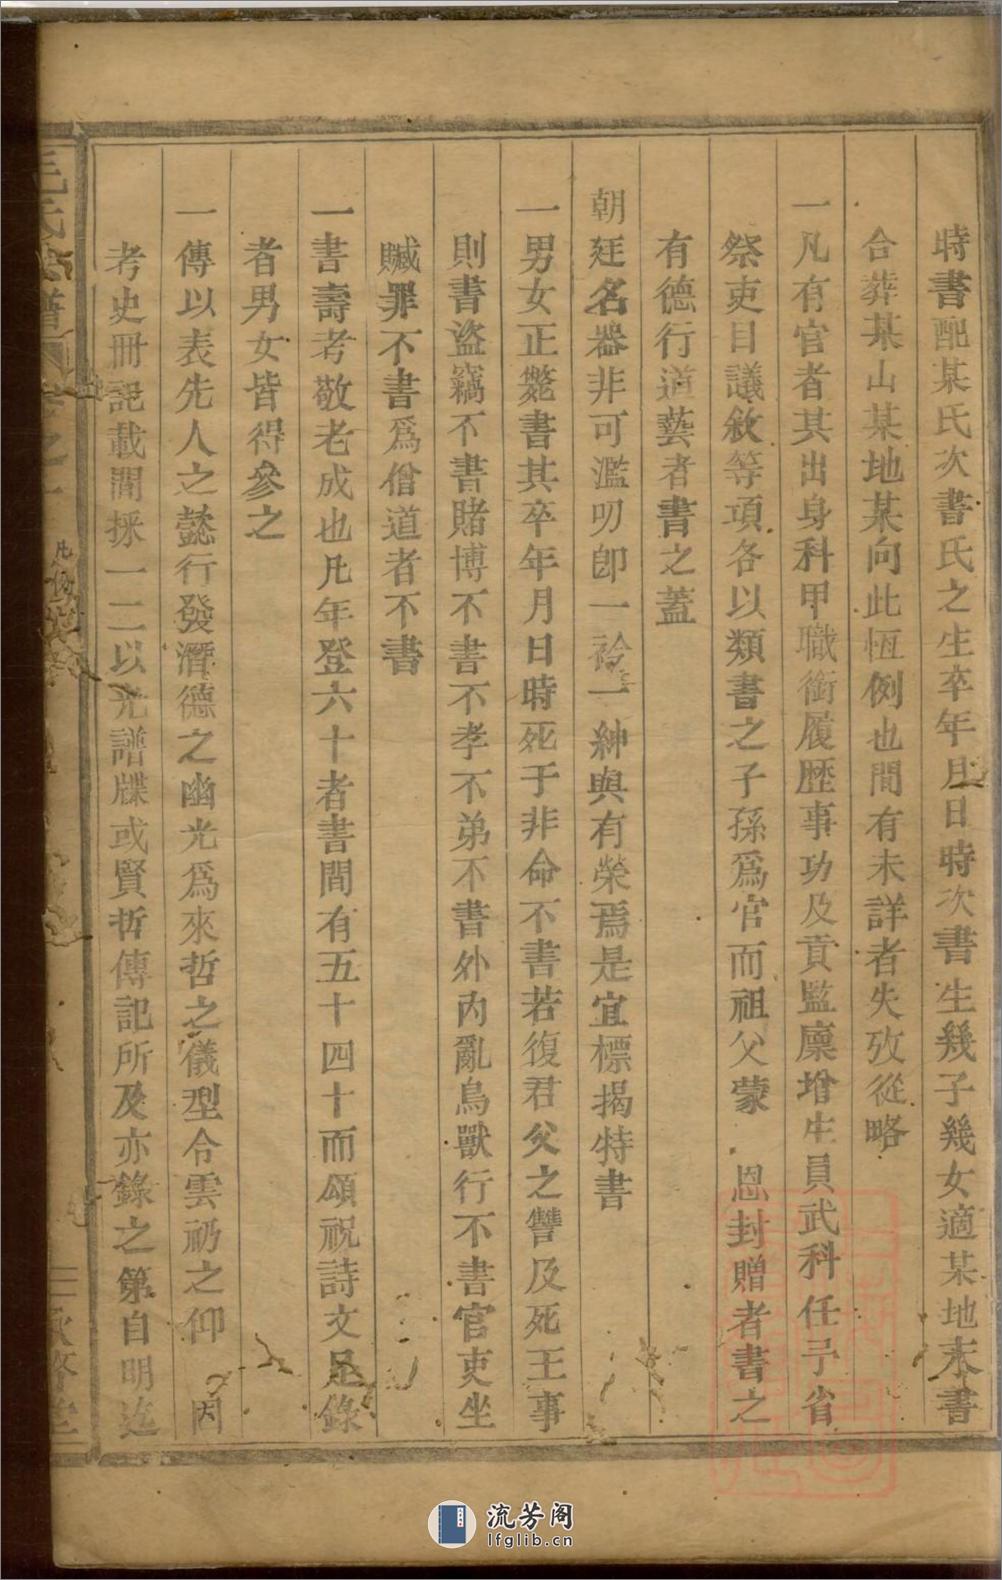 時書配某氏次書氏之生卒年月日時次書生幾子幾女適某地末書
合葬某山某地某向此恆例也間有未詳者失攷從略
一凡有官者其出身科甲職銜履歷事功及貢監廩增生員武科任予省
祭吏目議敘等項各以類書之子孫爲官而祖父蒙 恩封贈者書之
有德行道藝者書之蓋
朝廷名器非可濫叨卽一衿一紳與有榮焉是宜標揭特書
一男女正斃書其卒年月日時死于非命不書若復君父之讐及死王事
則書盜竊不書賭博不書不孝不弟不書外內亂鳥獸行不書官吏坐
贓罪不書爲僧道者不書
一書壽考敬老成也凡年登六十者書間有五十四十而頌祝詩文足錄
者男女皆得參之
一傳以表先人之懿行發潛德之幽光爲來哲之儀型令雲礽之仰 因
考史冊記載間採一二以光譜牒或賢哲傳記所及亦錄之第自明迄
毛氏 譜 之一
凡例
三
流芳阁
lfglib.cn